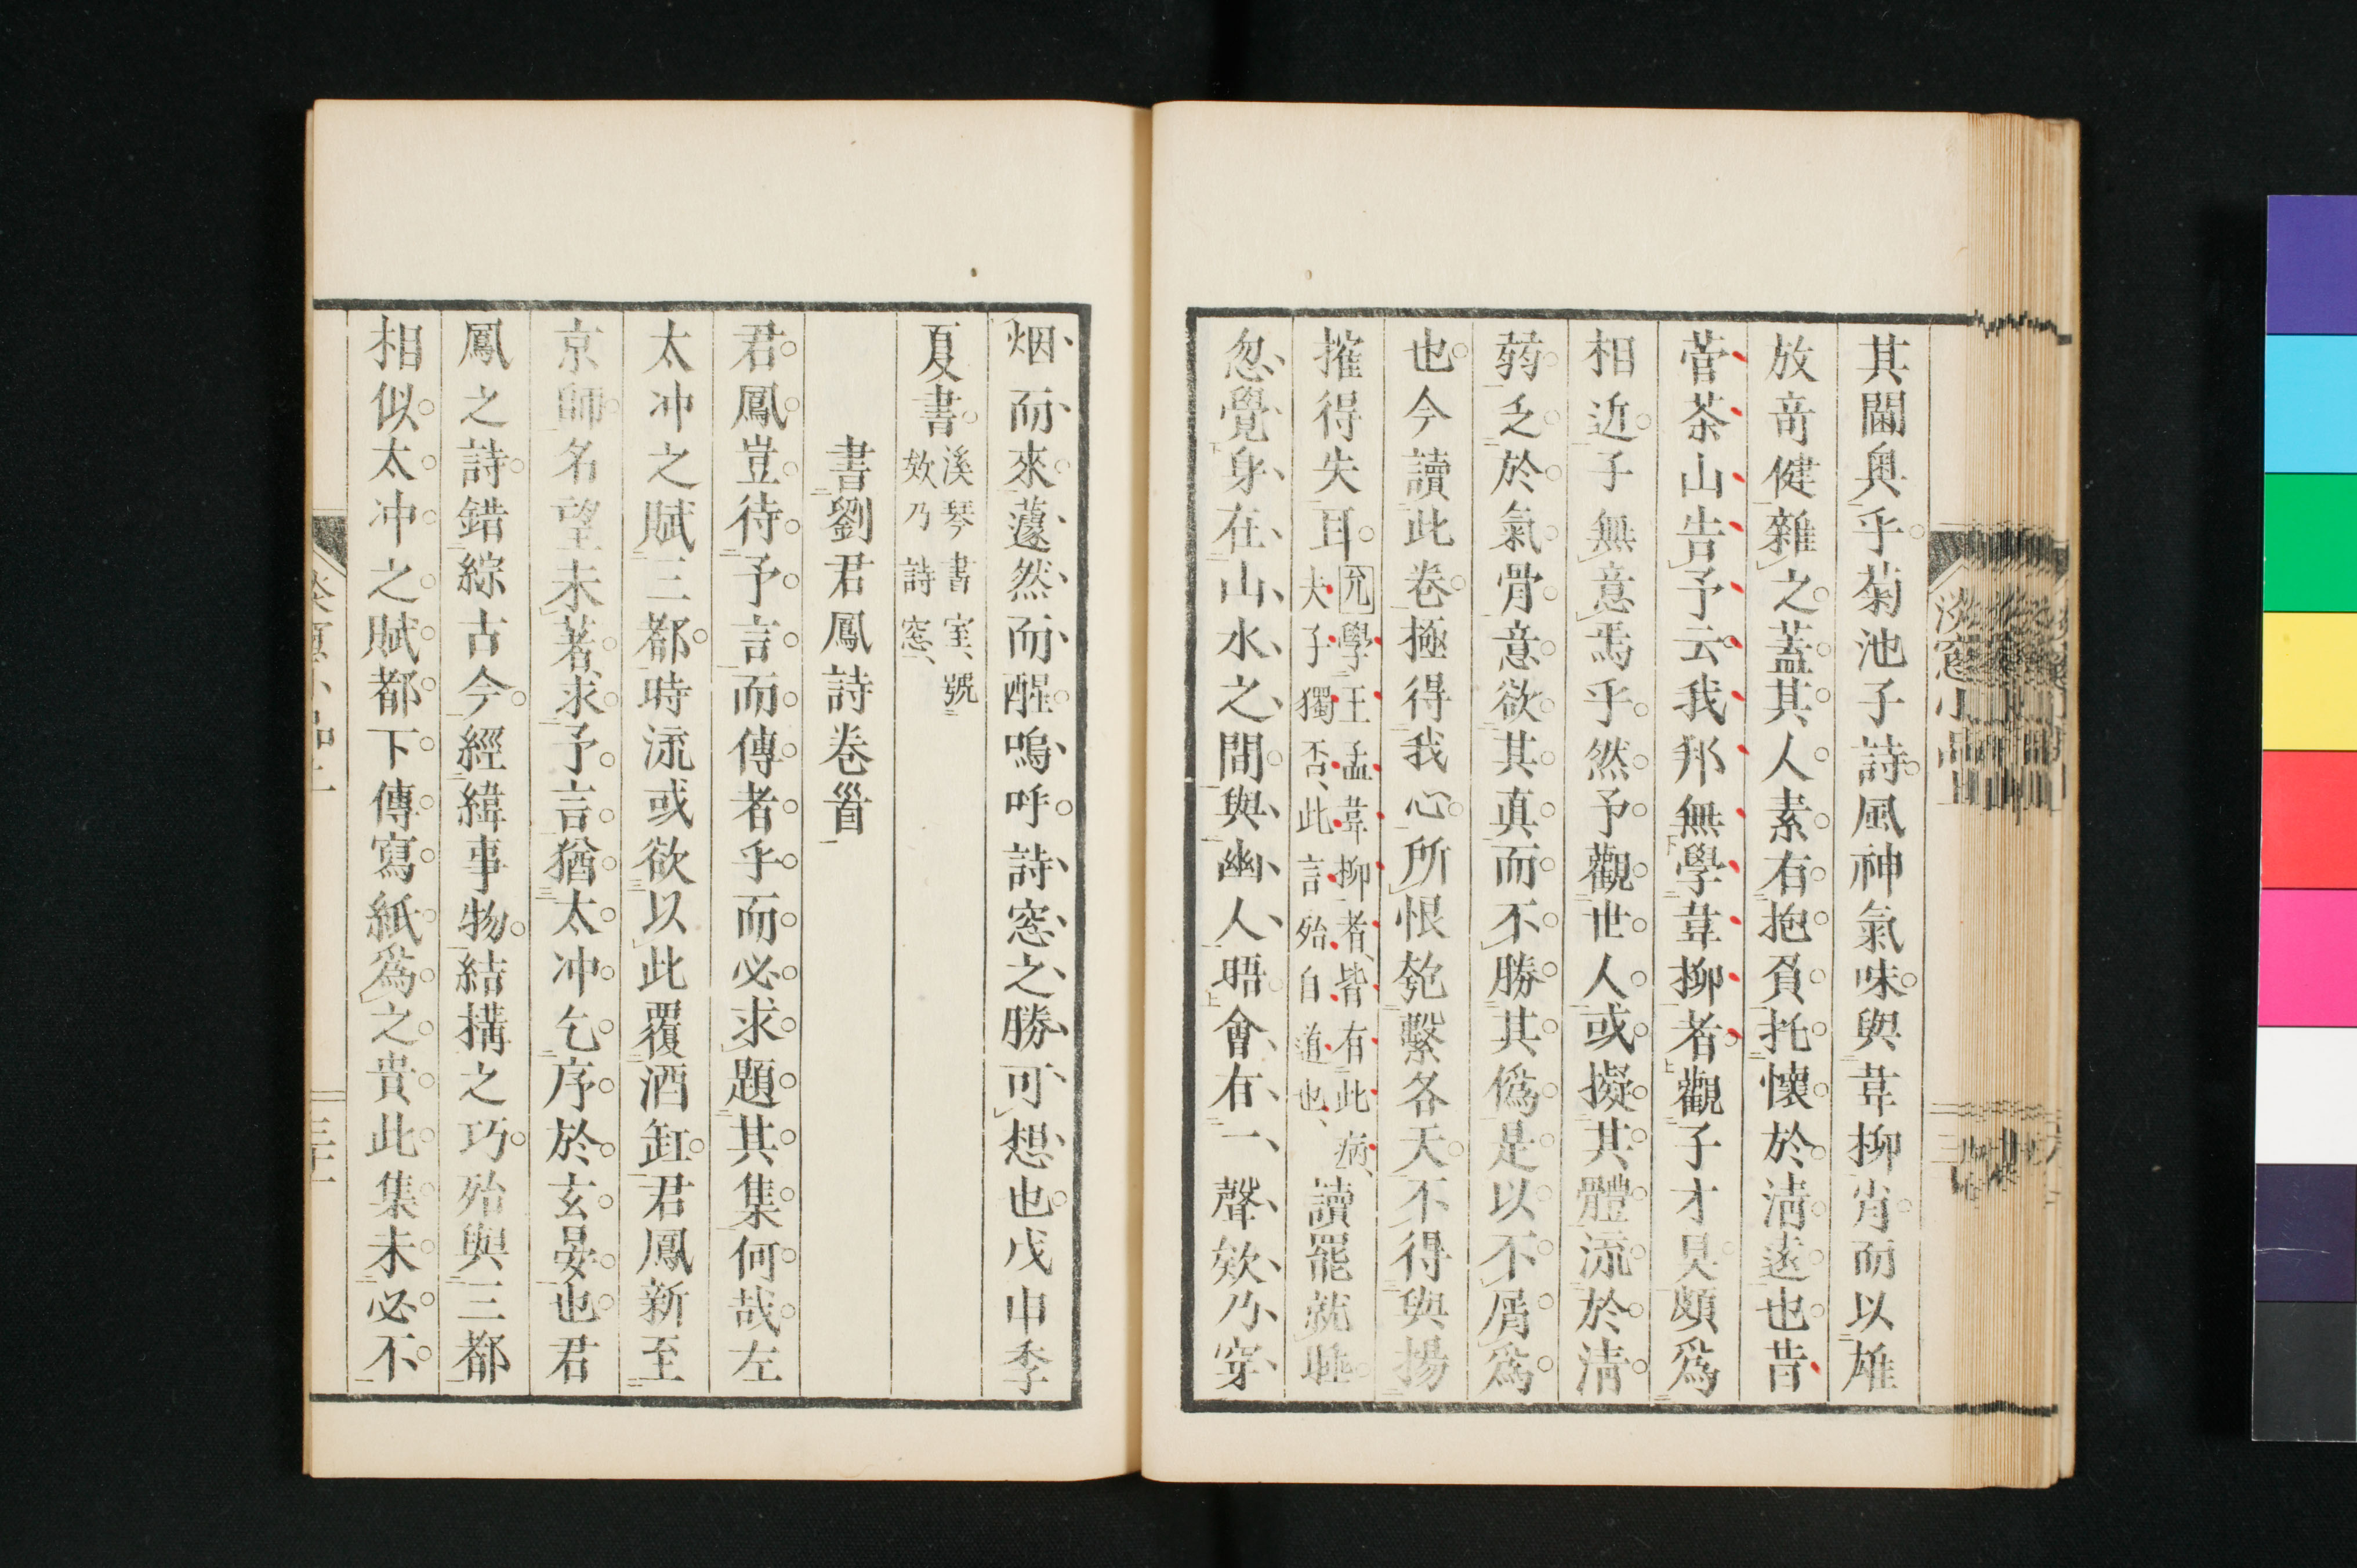 其閫奧乎菊池子詩風神氣味與韋柳肖而以雄
放奇健雜之蓋其人素有抱負托懷於淸遠也昔
菅茶山告予云我邦無學韋柳者觀子才具頗爲
相近子無意焉乎然予觀世人或擬其體流於淸
弱乏於氣骨意欲其真而不勝其僞是以不屑爲
也今讀此卷極得我心所恨匏繫各天不得與揚
搉得失耳
凡學王孟韋柳者皆有此病
夫子獨否此言殆自道也
讀罷就睡
忽覺身在山水之間與幽人晤會有一聲欸乃穿
淡窓小品上
烟而來蘧然而醒嗚呼詩窓之勝可想也戊申季
夏書
溪琴書室號
欸乃詩窓
書劉君鳳詩卷首
君鳳豈待予言而傳者乎而必求題其集何哉左
太冲之賦三都時流或欲以此覆酒缸君鳳新至
京師名望未著求予言猶太冲乞序於玄晏也君
鳳之詩錯綜古今經緯事物結搆之巧殆與三都
相似太冲之賦都下傳寫紙爲之貴此集未必不